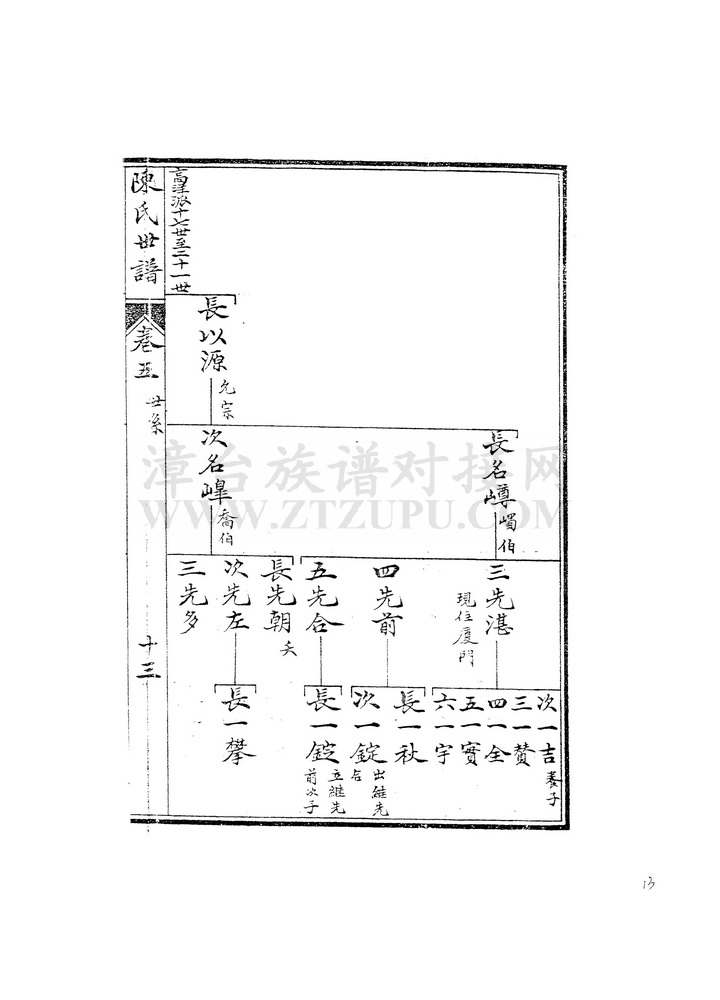 陳氏世譜
卷五
世系
十三
高洋派十七世至二十一世
長以源
允宗
長名嶟
嵋伯
次名嶂
喬伯
三先湛
現住廈門
四先前
五先合
長先朝
夭
次先左
三先多
次一吉
養子
三一贊
四一全
五一實
六一宇
長一秋
次一錠
出継先
合
長一錠
立継先
前次子
長一攀
漳台族谱对接网
WWW.ZTZUPU.COM
13